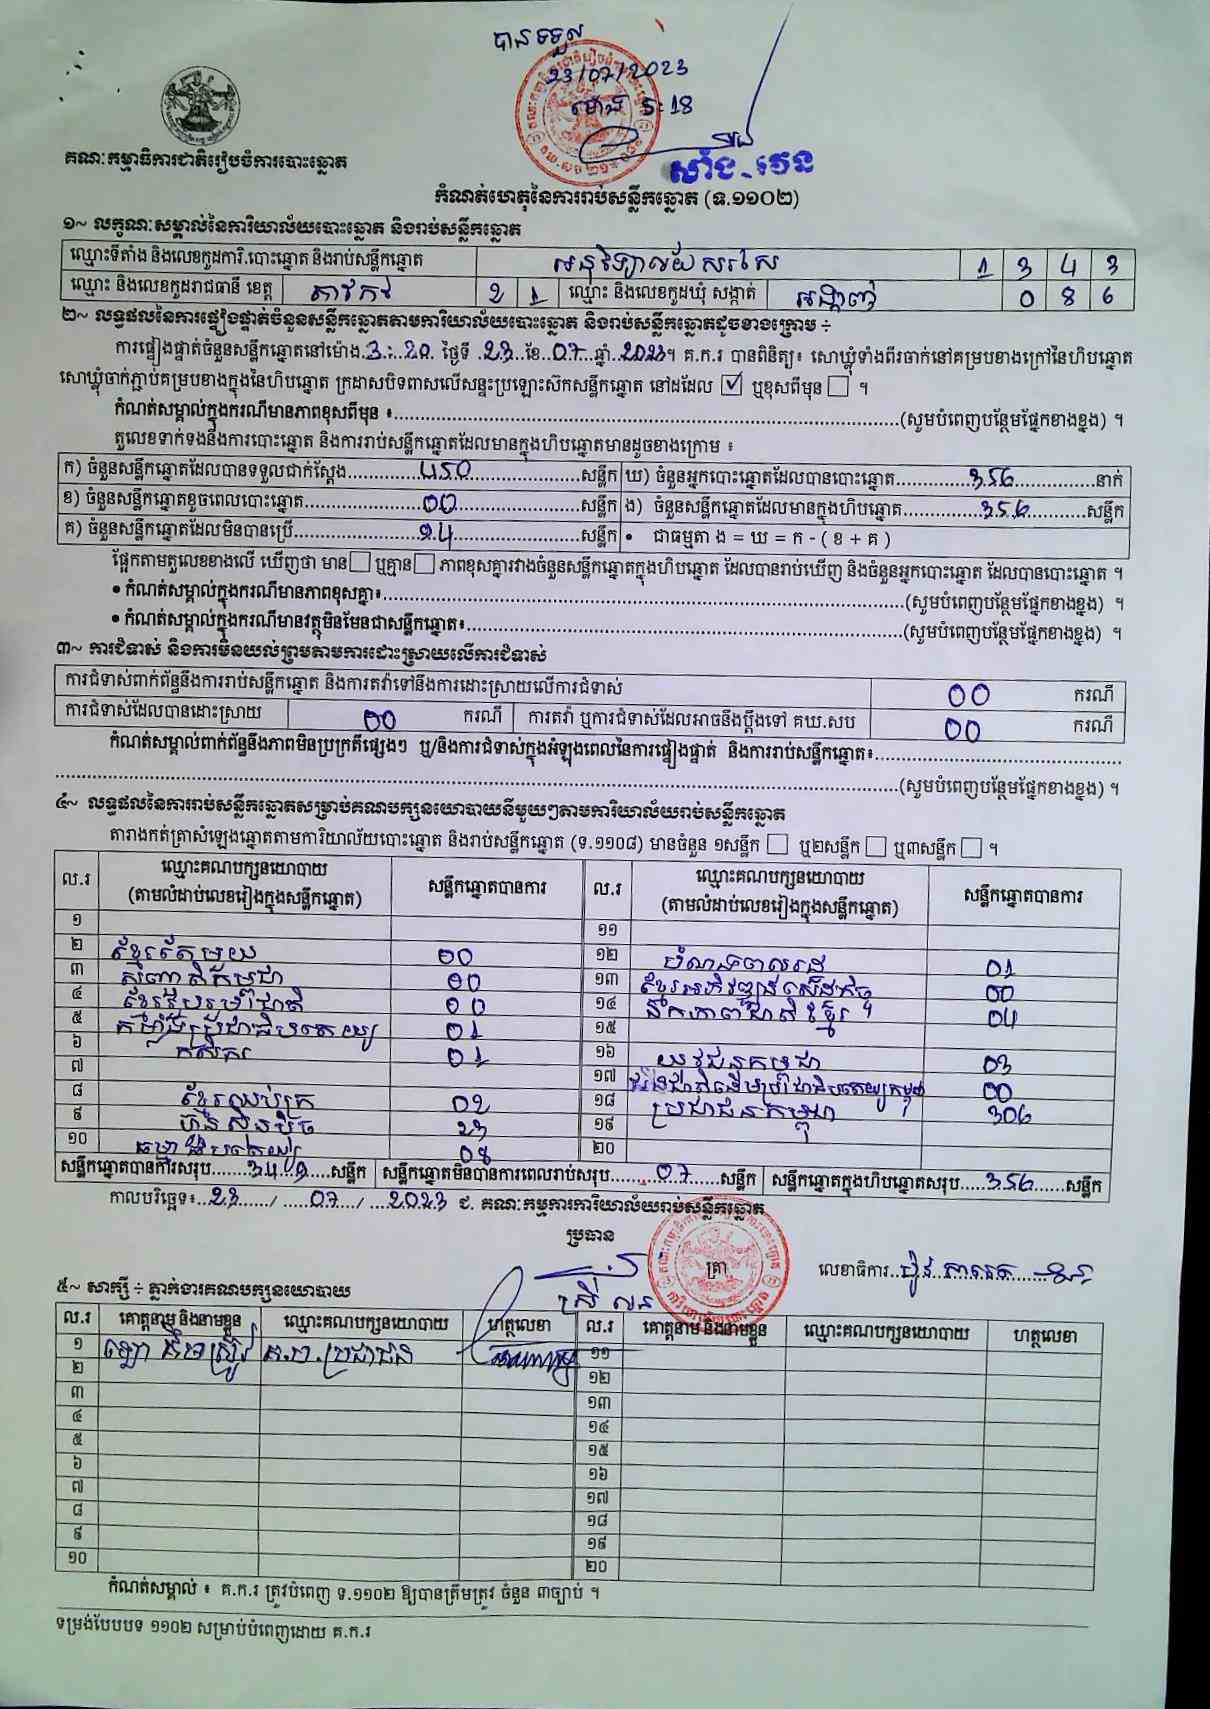 បានទទួល
23/07/2023
ម៉ោង 5:18
គណៈកម្មាធិការជាតិរៀបចំការបោះឆ្នោត
កំណត់ហេតុនៃការរាប់សន្លឹកឆ្នោត (ទ.១១០២)
១~ លក្ខណៈសម្គាល់នៃការិយាល័យបោះឆ្នោត និងរាប់សន្លឹកឆ្នោត
ឈ្មោះទីតាំង និងលេខកូដការិ.បោះឆ្នោត និងរាប់សន្លឹកឆ្នោត អនុវិទ្យាល័យ 1 3 4 3
ឈ្មោះ និងលេខកូដរាជធានី ខេត្ត តាកែវ 2 1 ឈ្មោះ និងលេខកូដឃុំ សង្កាត់ អង្កាញ់ 0 8 6
២~ លទ្ធផលនៃការផ្ទៀងផ្ទាត់ចំនួនសន្លឹកឆ្នោតតាមការិយាល័យបោះឆ្នោត និងរាប់សន្លឹកឆ្នោតដូចខាងក្រោម ÷
ការផ្ទៀងផ្ទាត់ចំនួនសន្លឹកឆ្នោតនៅម៉ោង.3:.20. ថ្ងៃទី .23.ខែ..07..ឆ្នាំ..2023។ គ.ក.រ បានពិនិត្យ៖ សោឃ្លុំទាំងពីរចាក់នៅគម្របខាងក្រៅនៃហិបឆ្នោត
សោឃ្លុំចាក់ភ្ជាប់គម្របខាងក្នុងនៃហិបឆ្នោត ក្រដាសបិទពាសលើសន្ទះប្រឡោះស៊កសន្លឹកឆ្នោត នៅដដែល ☑ ឬខុសពីមុន ☐ ។
កំណត់សម្គាល់ក្នុងករណីមានភាពខុសពីមុន ៖.....(សូមបំពេញបន្ថែមផ្នែកខាងខ្នង) ។
តួលេខទាក់ទងនឹងការបោះឆ្នោត និងការរាប់សន្លឹកឆ្នោតដែលមានក្នុងហិបឆ្នោតមានដូចខាងក្រោម ៖
ក) ចំនួនសន្លឹកឆ្នោតដែលបានទទួលជាក់ស្ដែង.....450.....សន្លឹក ឃ) ចំនួនអ្នកបោះឆ្នោតដែលបានបោះឆ្នោត.....356.....នាក់
ខ) ចំនួនសន្លឹកឆ្នោតខូចពេលបោះឆ្នោត.....00.....សន្លឹក ង) ចំនួនសន្លឹកឆ្នោតដែលមានក្នុងហិបឆ្នោត.....356.....សន្លឹក
គ) ចំនួនសន្លឹកឆ្នោតដែលមិនបានប្រើ.....94.....សន្លឹក • ជាធម្មតា ង = ឃ = ក - ( ខ + គ )
ផ្អែកតាមតួលេខខាងលើ ឃើញថា មាន☐ ឬគ្មាន☐ ភាពខុសគ្នារវាងចំនួនសន្លឹកឆ្នោតក្នុងហិបឆ្នោត ដែលបានរាប់ឃើញ និងចំនួនអ្នកបោះឆ្នោត ដែលបានបោះឆ្នោត ។
• កំណត់សម្គាល់ក្នុងករណីមានភាពខុសគ្នា៖.....(សូមបំពេញបន្ថែមផ្នែកខាងខ្នង) ។
• កំណត់សម្គាល់ក្នុងករណីមានវត្ថុមិនមែនជាសន្លឹកឆ្នោត៖.....(សូមបំពេញបន្ថែមផ្នែកខាងខ្នង) ។
៣~ ការជំទាស់ និងការមិនយល់ព្រមតាមការដោះស្រាយលើការជំទាស់
ការជំទាស់ពាក់ព័ន្ធនឹងការរាប់សន្លឹកឆ្នោត និងការតវ៉ាទៅនឹងការដោះស្រាយលើការជំទាស់ 00 ករណី
ការជំទាស់ដែលបានដោះស្រាយ 00 ករណី ការតវ៉ា ឬការជំទាស់ដែលអាចនឹងប្ដឹងទៅ គឃ.សប 00 ករណី
កំណត់សម្គាល់ពាក់ព័ន្ធនឹងភាពមិនប្រក្រតីផ្សេងៗ ឬ/និងការជំទាស់ក្នុងអំឡុងពេលនៃការផ្ទៀងផ្ទាត់ និងការរាប់សន្លឹកឆ្នោត៖.....
.....(សូមបំពេញបន្ថែមផ្នែកខាងខ្នង) ។
៤~ លទ្ធផលនៃការរាប់សន្លឹកឆ្នោតសម្រាប់គណបក្សនយោបាយនីមួយៗតាមការិយាល័យរាប់សន្លឹកឆ្នោត
តារាងកត់ត្រាសំឡេងឆ្នោតតាមការិយាល័យបោះឆ្នោត និងរាប់សន្លឹកឆ្នោត (ទ.១១០៨) មានចំនួន ១សន្លឹក ☐ ឬ២សន្លឹក ☐ ឬ៣សន្លឹក ☐ ។
ល.រ ឈ្មោះគណបក្សនយោបាយ (តាមលំដាប់លេខរៀងក្នុងសន្លឹកឆ្នោត) សន្លឹកឆ្នោតបានការ ល.រ ឈ្មោះគណបក្សនយោបាយ (តាមលំដាប់លេខរៀងក្នុងសន្លឹកឆ្នោត) សន្លឹកឆ្នោតបានការ
១ ១១
២ ខ្មែរតែមួយ 00 ១២ 01
៣ សញ្ជាតិកម្ពុជា 00 ១៣ ខ្មែរអភិវឌ្ឍន៍សេដ្ឋកិច្ច 00
៤ ខ្មែររួបរួមជាតិ 00 ១៤ ឯកភាពជាតិខ្មែរ 04
៥ កម្លាំងប្រជាធិបតេយ្យ 01 ១៥
៦ កសិករ 01 ១៦ យុវជនកម្ពុជា 03
៧ ១៧ 00
៨ ខ្មែរឈប់ក្រ 02 ១៨ ប្រជាជនកម្ពុជា 306
៩ ហ៊្វុនស៊ិនប៉ិច 23 ១៩
១០ ធម្មាធិបតេយ្យ 08 ២០
សន្លឹកឆ្នោតបានការសរុប.....349.....សន្លឹក សន្លឹកឆ្នោតមិនបានការពេលរាប់សរុប.....07.....សន្លឹក សន្លឹកឆ្នោតក្នុងហិបឆ្នោតសរុប.....356.....សន្លឹក
កាលបរិច្ឆេទ៖..23..../ ....07.../ ...2023 ជ. គណៈកម្មការការិយាល័យរាប់សន្លឹកឆ្នោត
ប្រធាន
ត្រា
លេខាធិការ
៥~ សាក្សី ÷ ភ្នាក់ងារគណបក្សនយោបាយ
ល.រ គោត្តនាម និងនាមខ្លួន ឈ្មោះគណបក្សនយោបាយ ហត្ថលេខា ល.រ គោត្តនាម និងនាមខ្លួន ឈ្មោះគណបក្សនយោបាយ ហត្ថលេខា
១ គ.ប.ប្រជាជន ១១
២ ១២
៣ ១៣
៤ ១៤
៥ ១៥
៦ ១៦
៧ ១៧
៨ ១៨
៩ ១៩
១០ ២០
កំណត់សម្គាល់ ៖ គ.ក.រ ត្រូវបំពេញ ទ.១១០២ ឱ្យបានត្រឹមត្រូវ ចំនួន ៣ច្បាប់ ។
ទម្រង់បែបបទ ១១០២ សម្រាប់បំពេញដោយ គ.ក.រ